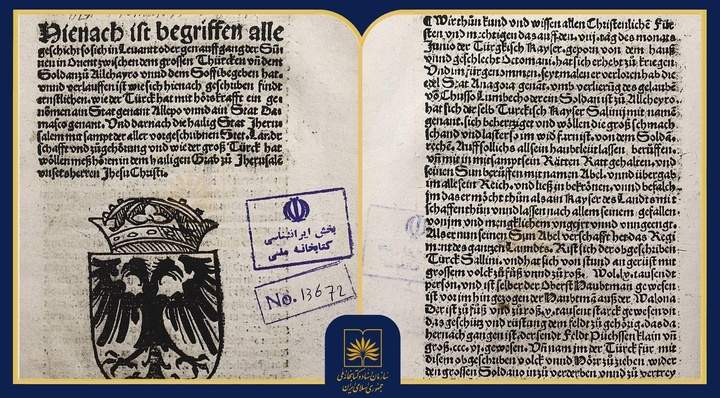 Hienach ist begriffen alle
geschicht so sich in Levant oder gen auffgang der Sũ
nen in Orient zwischen dem grossen Thürcken vñ dem
Soldan zů Allchayro vnnd dem Soffi begeben hat.
vnnd verlauffen ist wie sich hienach geschriben findt
ernstlichen. wie der Türck hat mit hörskrafft ein ge
nomen ain Stat genant Allepo vnnd ain Stat Da
masco genant. Vnd darnach die hailig Stat Jheru
salem mit sampt der aller vorgeschribnen Stet. Landt
schafft vnd zůgehörung vnd wie der groß Türck hat
wöllen meß hören in dem hailigen Grab zů Jherusalē
vnsers herren Jhesu Christi.
بخش ایرانشناسی
کتابخانه ملی
No. 13672
¶ Wir thůn kund vnd wissen allen Christenlichē Für
sten vnd mechtigen das auff den. vij. tag des monats
Junio der Türgkisch Kayser. geporn von dem hauß
vnnd geschlecht Octomani. hat sich erhebt zů kriegen.
Vnd im fürgenommen. seytmalen er verloren hab die
Stat Anagora genat. vmb verlierug des gelaubē
ein Soldan ist zů Allcheyro.
hat sich die selb Türckisch Kayser Salini mit namē
genant. sich beherziget vnd wöllen die groß schmach
schand vnd laster so im widfarn ist. von dem Solda
reche. Auff sollichs all sein haubtleüt lassen berüffen.
vñ mit in mitsampt sein Rätten Ratt gehalten. vnd
seinen Sun berüffen mit namen Abel. vnnd übergab
im alle sein Reich. vnd ließ in bekrönen. vnnd befalch
im das er möcht thůn als ain Kayser des Lands mit
schaffen thůn vnnd lassen nach allem seinem gefallen
von im vnd mengklichem vngeirt vnnd vnuengt.
Als er nun seinen Sun Abel verschafft het das Regi
ment des gantzen Lanndts. Rist sich der obgeschriben
Türck Sallini. vnd hat sich von stund an gerüst mit
grossem volck zů fůß vnnd zů roß. v. Mol. ly. tausendt
person. vnd ist selber der Oberst Haubtman gewesen
ist vor im hingezogen der Haubtman auß der Walona
Der ist zů fůß vnd zů roß. v. tausent starck gewesen vnd
das geschütz vnd rüstung dem feldt zů gehörig. das da
hernach gangen ist. der send Feldt Püchssen klain vñ
groß. ccc. vj. gewesen. Vñ nam im der Türck für mit
disem obgeschriben volck vnnd Hör zů ziehen wider
den grossen Soldano in zů verderben vnnd zů vertrey
سازمان اسناد و کتابخانه ملی
جمهوری اسلامی ایران